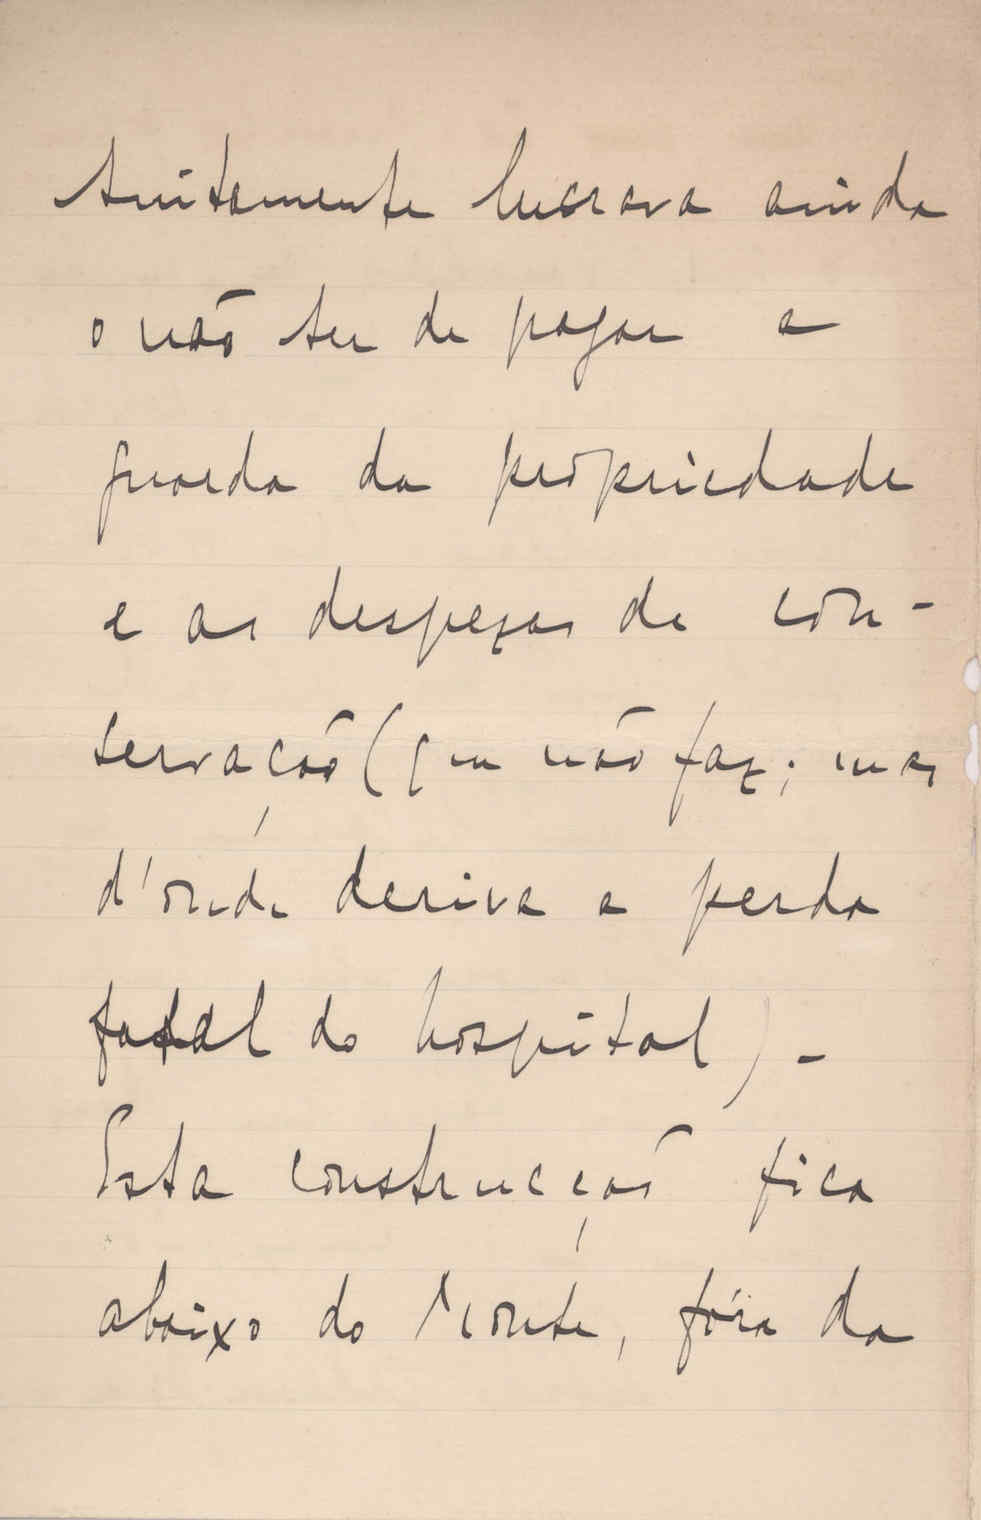 tuitamente lucrava ainda
o não ter de pagar a
guarda da propriedade
e as despezas de con-
servação (que não faz; mas
d'onde deriva a perda
fatal do hospital) -
Esta construcção fica
abaixo do Monte, fóra da